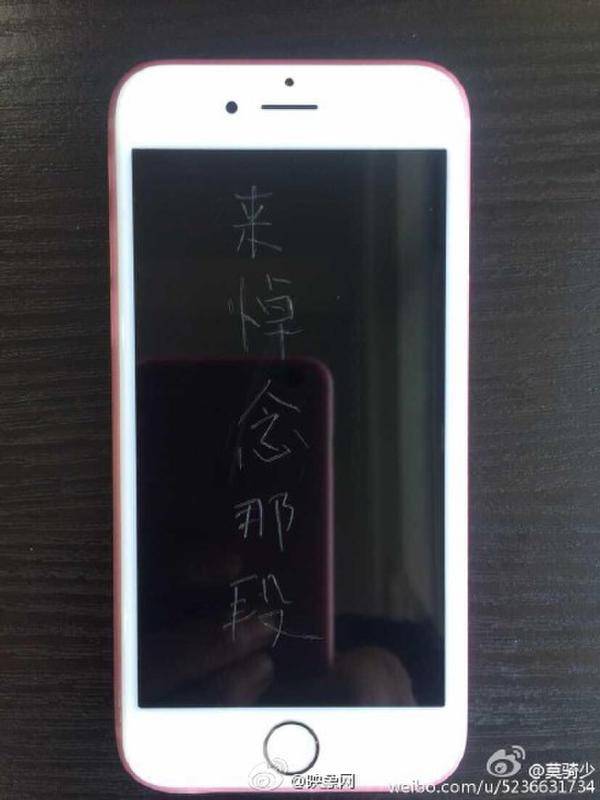 来悼念那段
@莫骑少
@映象网
weibo.com/u/5236631734